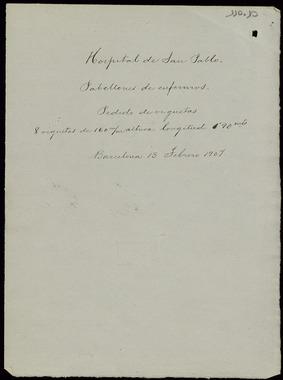 Hospital de San Pablo.
Pabellones de enfermos.
Pedido de viguetas
8 viguetas de 160 m/m altura longitud
Barcelona 13 Febrero 1907